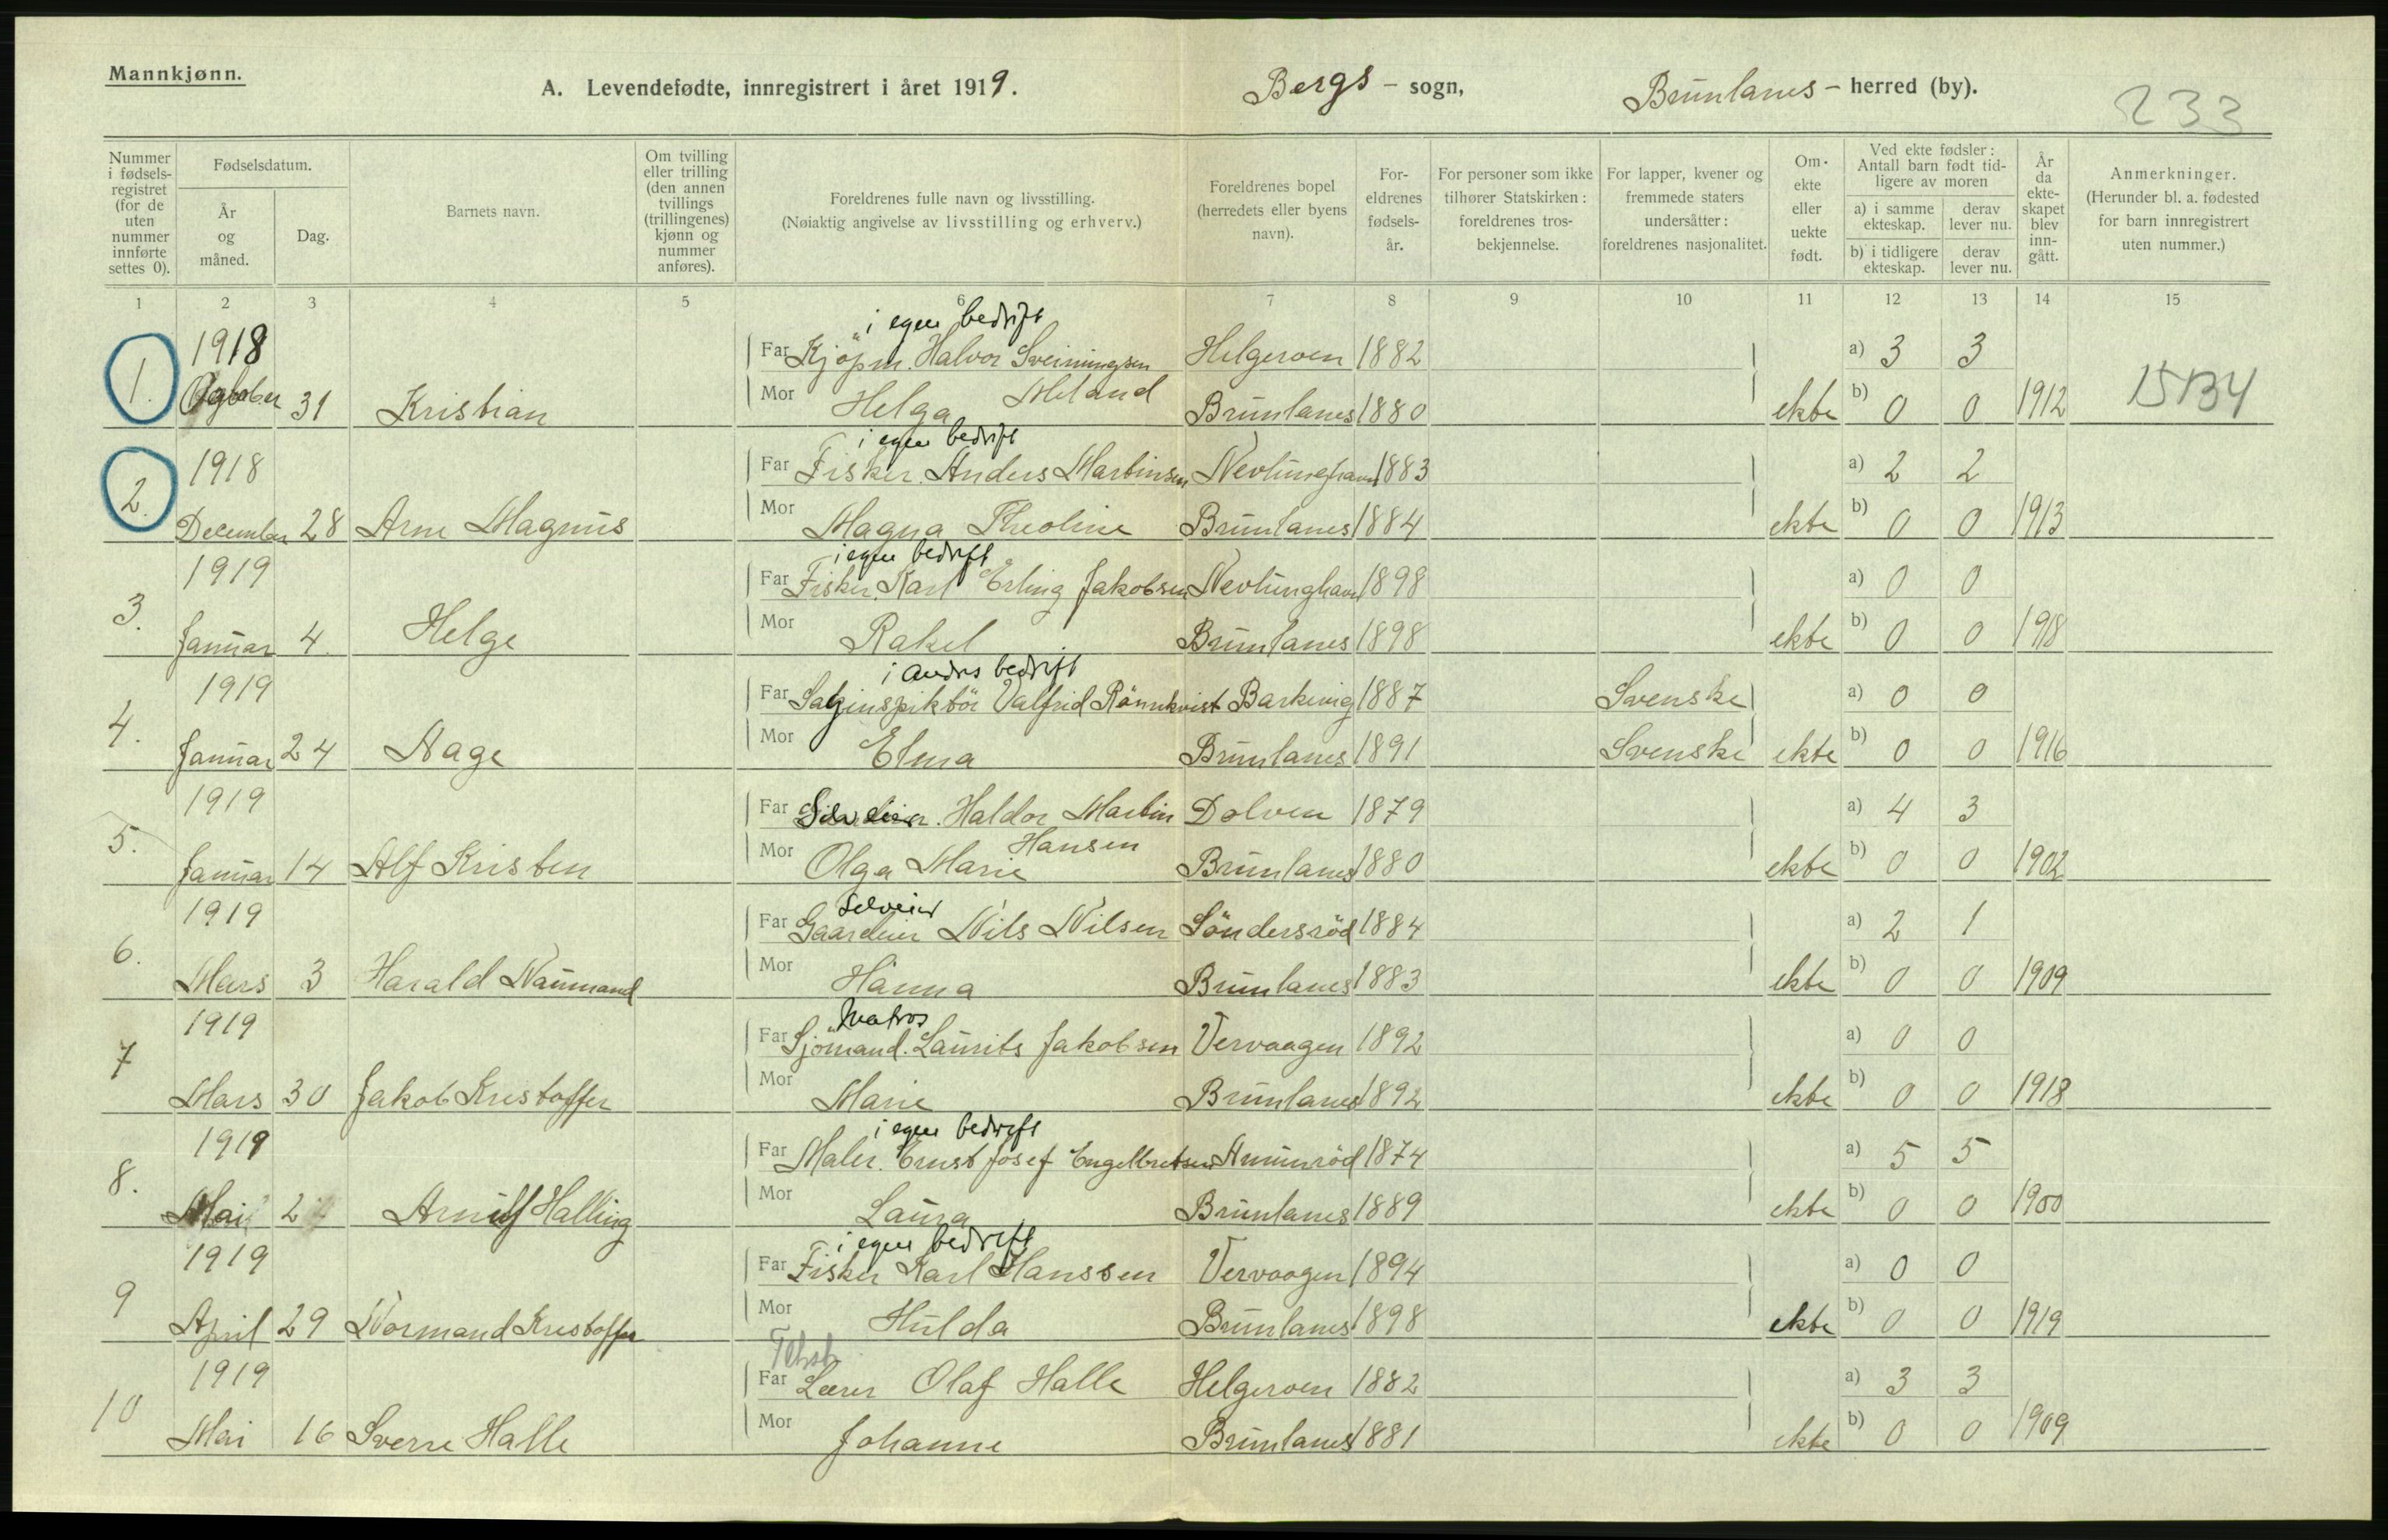 Mannkjønn.
A. Levendefødte, innregistrert i året 1919. Bergs - sogn, Brunlanes - herred (by).
233
Nummer i fødselsregistret (for de uten nummer innførte settes 0).
Fødselsdatum.
År og måned.
Dag.
Barnets navn.
Om tvilling eller trilling (den annen tvillings (trillingenes) kjønn og nummer anføres).
Foreldrenes fulle navn og livsstilling.
(Nøiaktig angivelse av livsstilling og erhverv.)
Foreldrenes bopel (herredets eller byens navn).
For-eldrenes fødsels-år.
For personer som ikke tilhører Statskirken: foreldrenes tros-bekjennelse.
For lapper, kvener og fremmede staters undersåtter: foreldrenes nasjonalitet.
Om ekte eller uekte født.
Ved ekte fødsler: Antall barn født tid-ligere av moren
a) i samme ekteskap.
derav lever nu.
b) i tidligere ekteskap.
derav lever nu.
År da ekte-skapet blev inn-gått.
Anmerkninger.
(Herunder bl. a. fødested for barn innregistrert uten nummer.)
1 2 3 4 5 6 7 8 9 10 11 12 13 14 15
i egen bedrift
1918 Far Kjöpm. Halvor Sveinungsen Helgeroen 1882 a) 3 3
1. October 31 Kristian Mor Helga Meland Brunlanes 1880 ekte b) 0 0 1912 15134
i egen bedrift
1918 Far Fisker. Anders Martinsen Nevlunghavn 1883 a) 2 2
2. December 28 Arne Magnus Mor Magna Theoline Brunlanes 1884 ekte b) 0 0 1913
i egen bedrift
1919 Far Fisker. Karl Erling Jakobsen Nevlunghavn 1898 a) 0 0
3. Januar 4. Helge Mor Rakel Brunlanes 1898 ekte b) 0 0 1918
i andres bedrift
1919 Far Valfrid Rönnkvist Barkevig 1887 Svenske a) 0 0
4. Januar 24 Aage Mor Elma Brunlanes 1891 Svenske ekte b) 0 0 1916
1919 Far Haldor Martin Dolven 1879 a) 4 3
Hansen
5. Januar 14 Alf Kristen Mor Olga Marie Brunlanes 1880 ekte b) 0 0 1902
Selveier
1919 Far Gaardeier Nils Nilsen Söndersröd 1884 a) 2 1
6. Mars 3 Harald Naumand Mor Hanna Brunlanes 1883 ekte b) 0 0 1909
Matros
1919 Far Sjömand. Laurits Jakobsen Vervaagen 1892 a) 0 0
7 Mars 30 Jakob Kristoffer Mor Marie Brunlanes 1892 ekte b) 0 0 1918
i egen bedrift
1919 Far Maler. Ernst Josef Engelbretsen 1874 a) 5 5
8. Mai 2 Arnulf Halling Mor Laura Brunlanes 1889 ekte b) 0 0 1900
i egen bedrift
1919 Far Fisker Karl Hanssen Vervaagen 1894 a) 0 0
9 April 29 Normand Kristoffer Mor Hulda Brunlanes 1898 ekte b) 0 0 1919
1919 Far Lærer Olaf Halle Helgeroen 1882 a) 3 3
10 Mai 16 Sverre Halle Mor Johanne Brunlanes 1881 ekte b) 0 0 1909